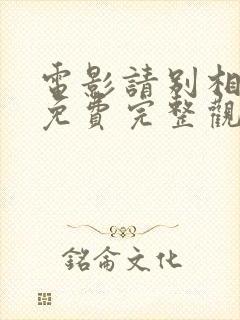 電影請別相
免費完整觀
銘侖文化